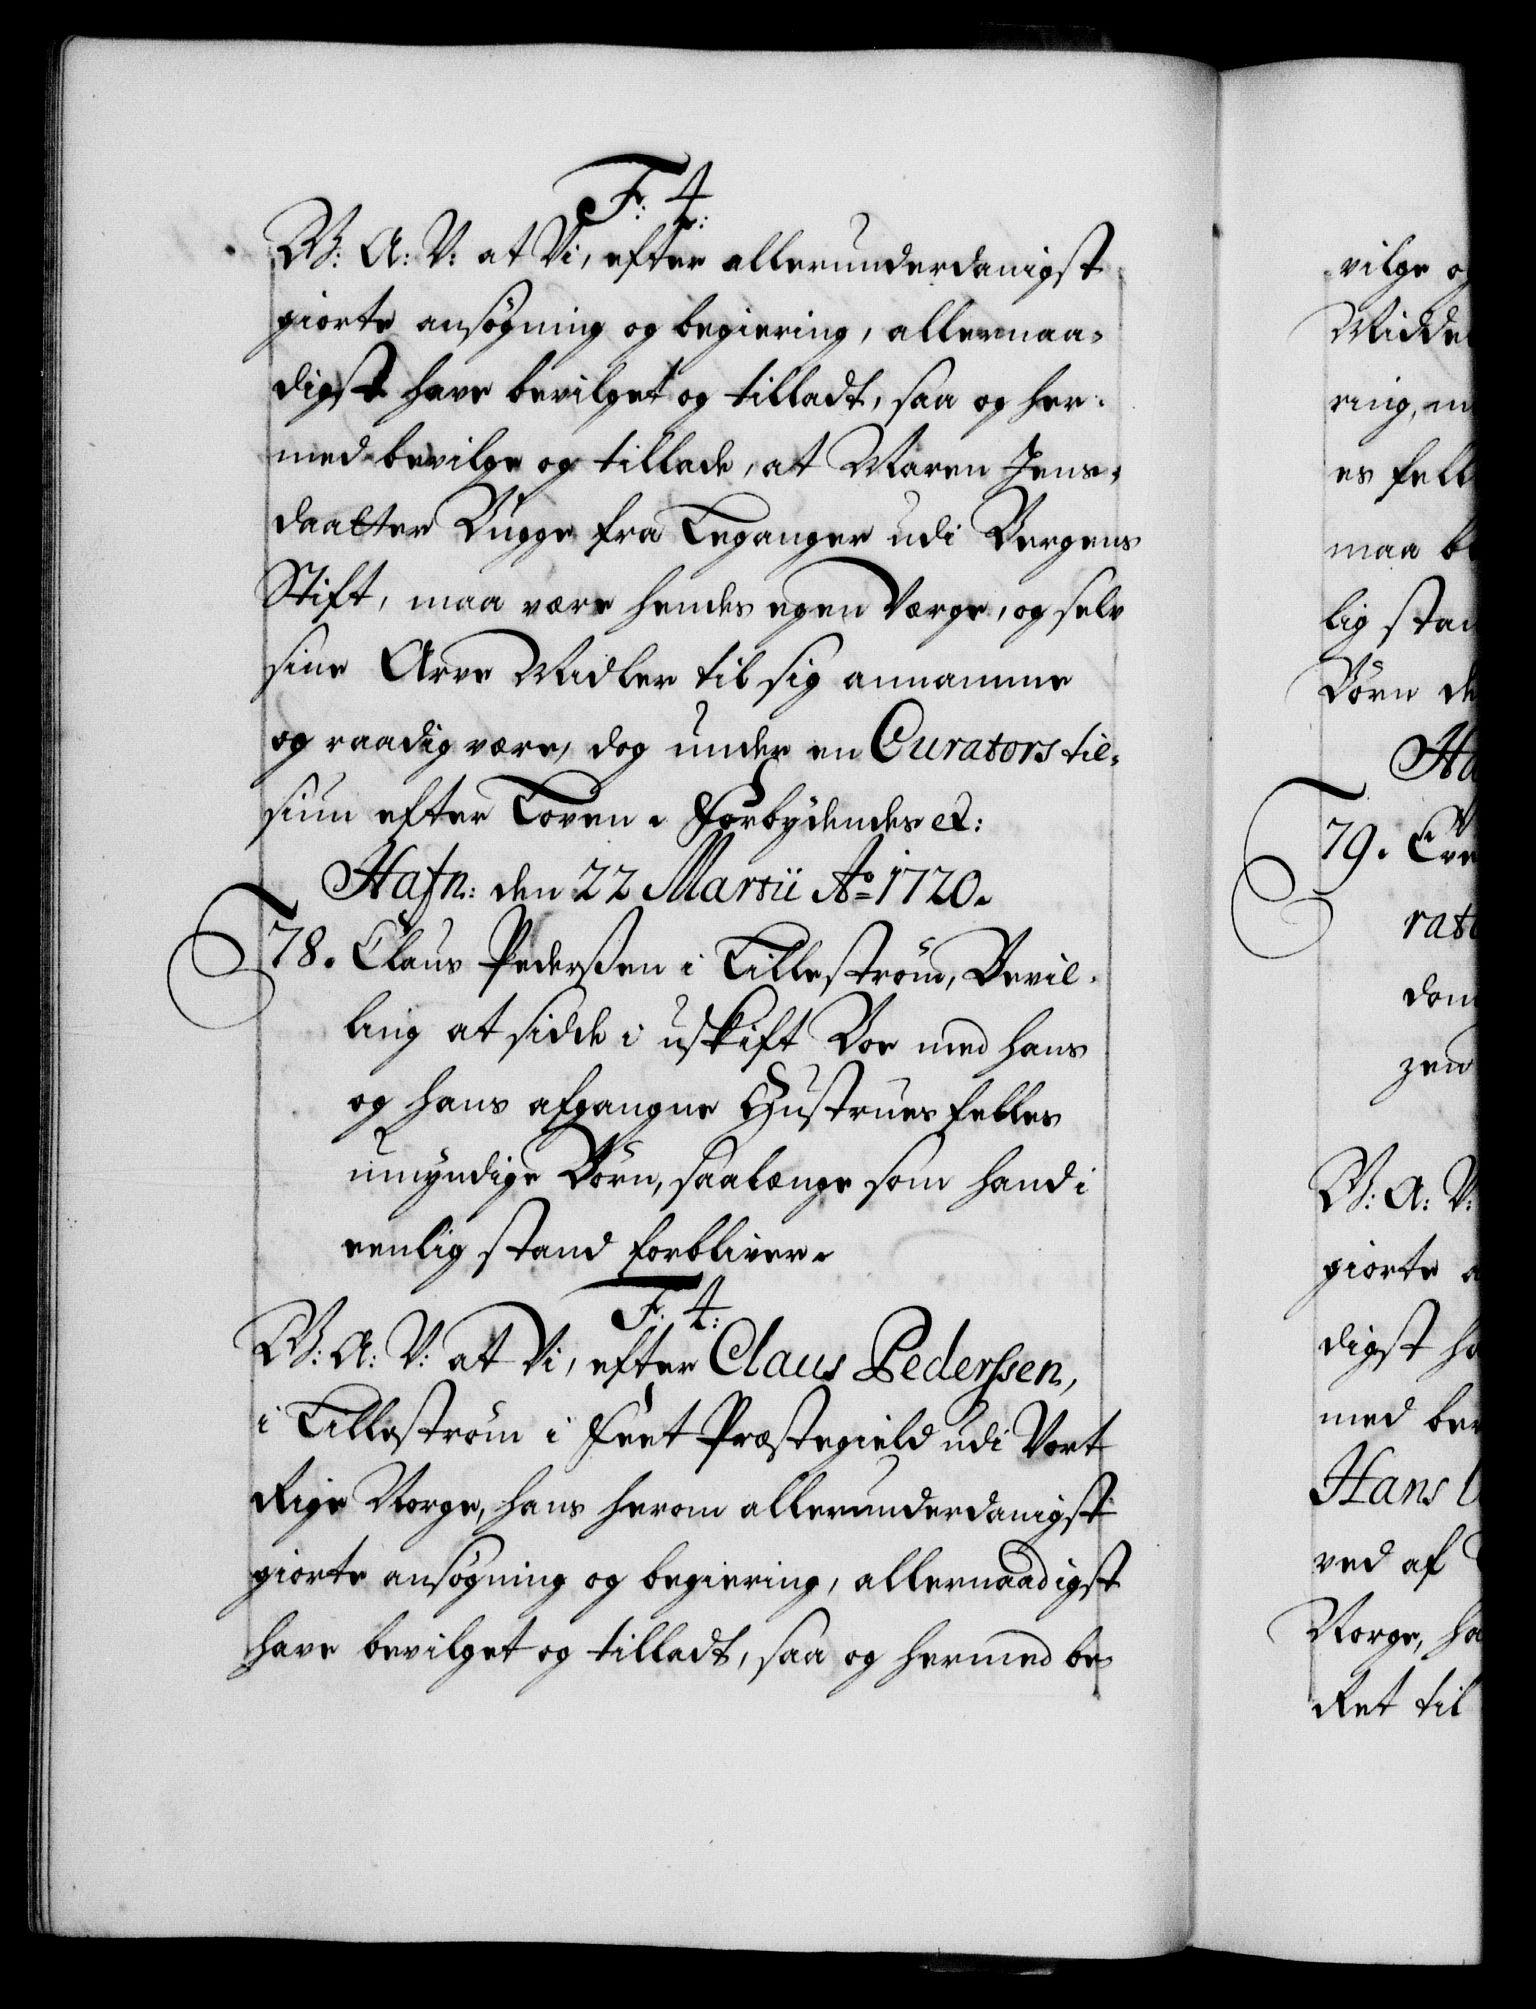 F: 4.
W: A: V: at Vi, efter allerunderdanigst
giorte ansøgning og begiering, allernaa-
digst have bevilget og tilladt, saa og her-
med bevilge og tillade, at Maren Jens-
daatter Bugge fra Leganger udi Bergens
Stift, maa være hendes egen Værge, og selv
sine Arve Midler til sig annamme
og raadig være, dog under en Curators til-
siun efter Loven. Forbydendes et:
Hafn: den 22 Martii Ao 1720.
78. Claus Pederssen i Lillestrøm, Bevil-
ling at sidde i uskift Boe med hans
og hans afgangne Hustrues felles
umyndige Børn, saalænge som hand i
eenlig stand forbliver.
F. 4:
W: A: V: at Vi, efter Claus Pederssen,
i Lillestrøm i Feet Præstegield udi Vort
Rige Norge, hans herom allerunderdanigst
giorte ansøgning og begiering, allernaadigst
have bevilget og tilladt, saa og hermed be-
vilge o
Midde
ring, m
es fell
maa b
lig stan
Børn de
Ha
79.
rato
dom
zen
W: A: V:
giorte a
digst ha
med bev
Hans
ved af
Norge, ha
Ret til